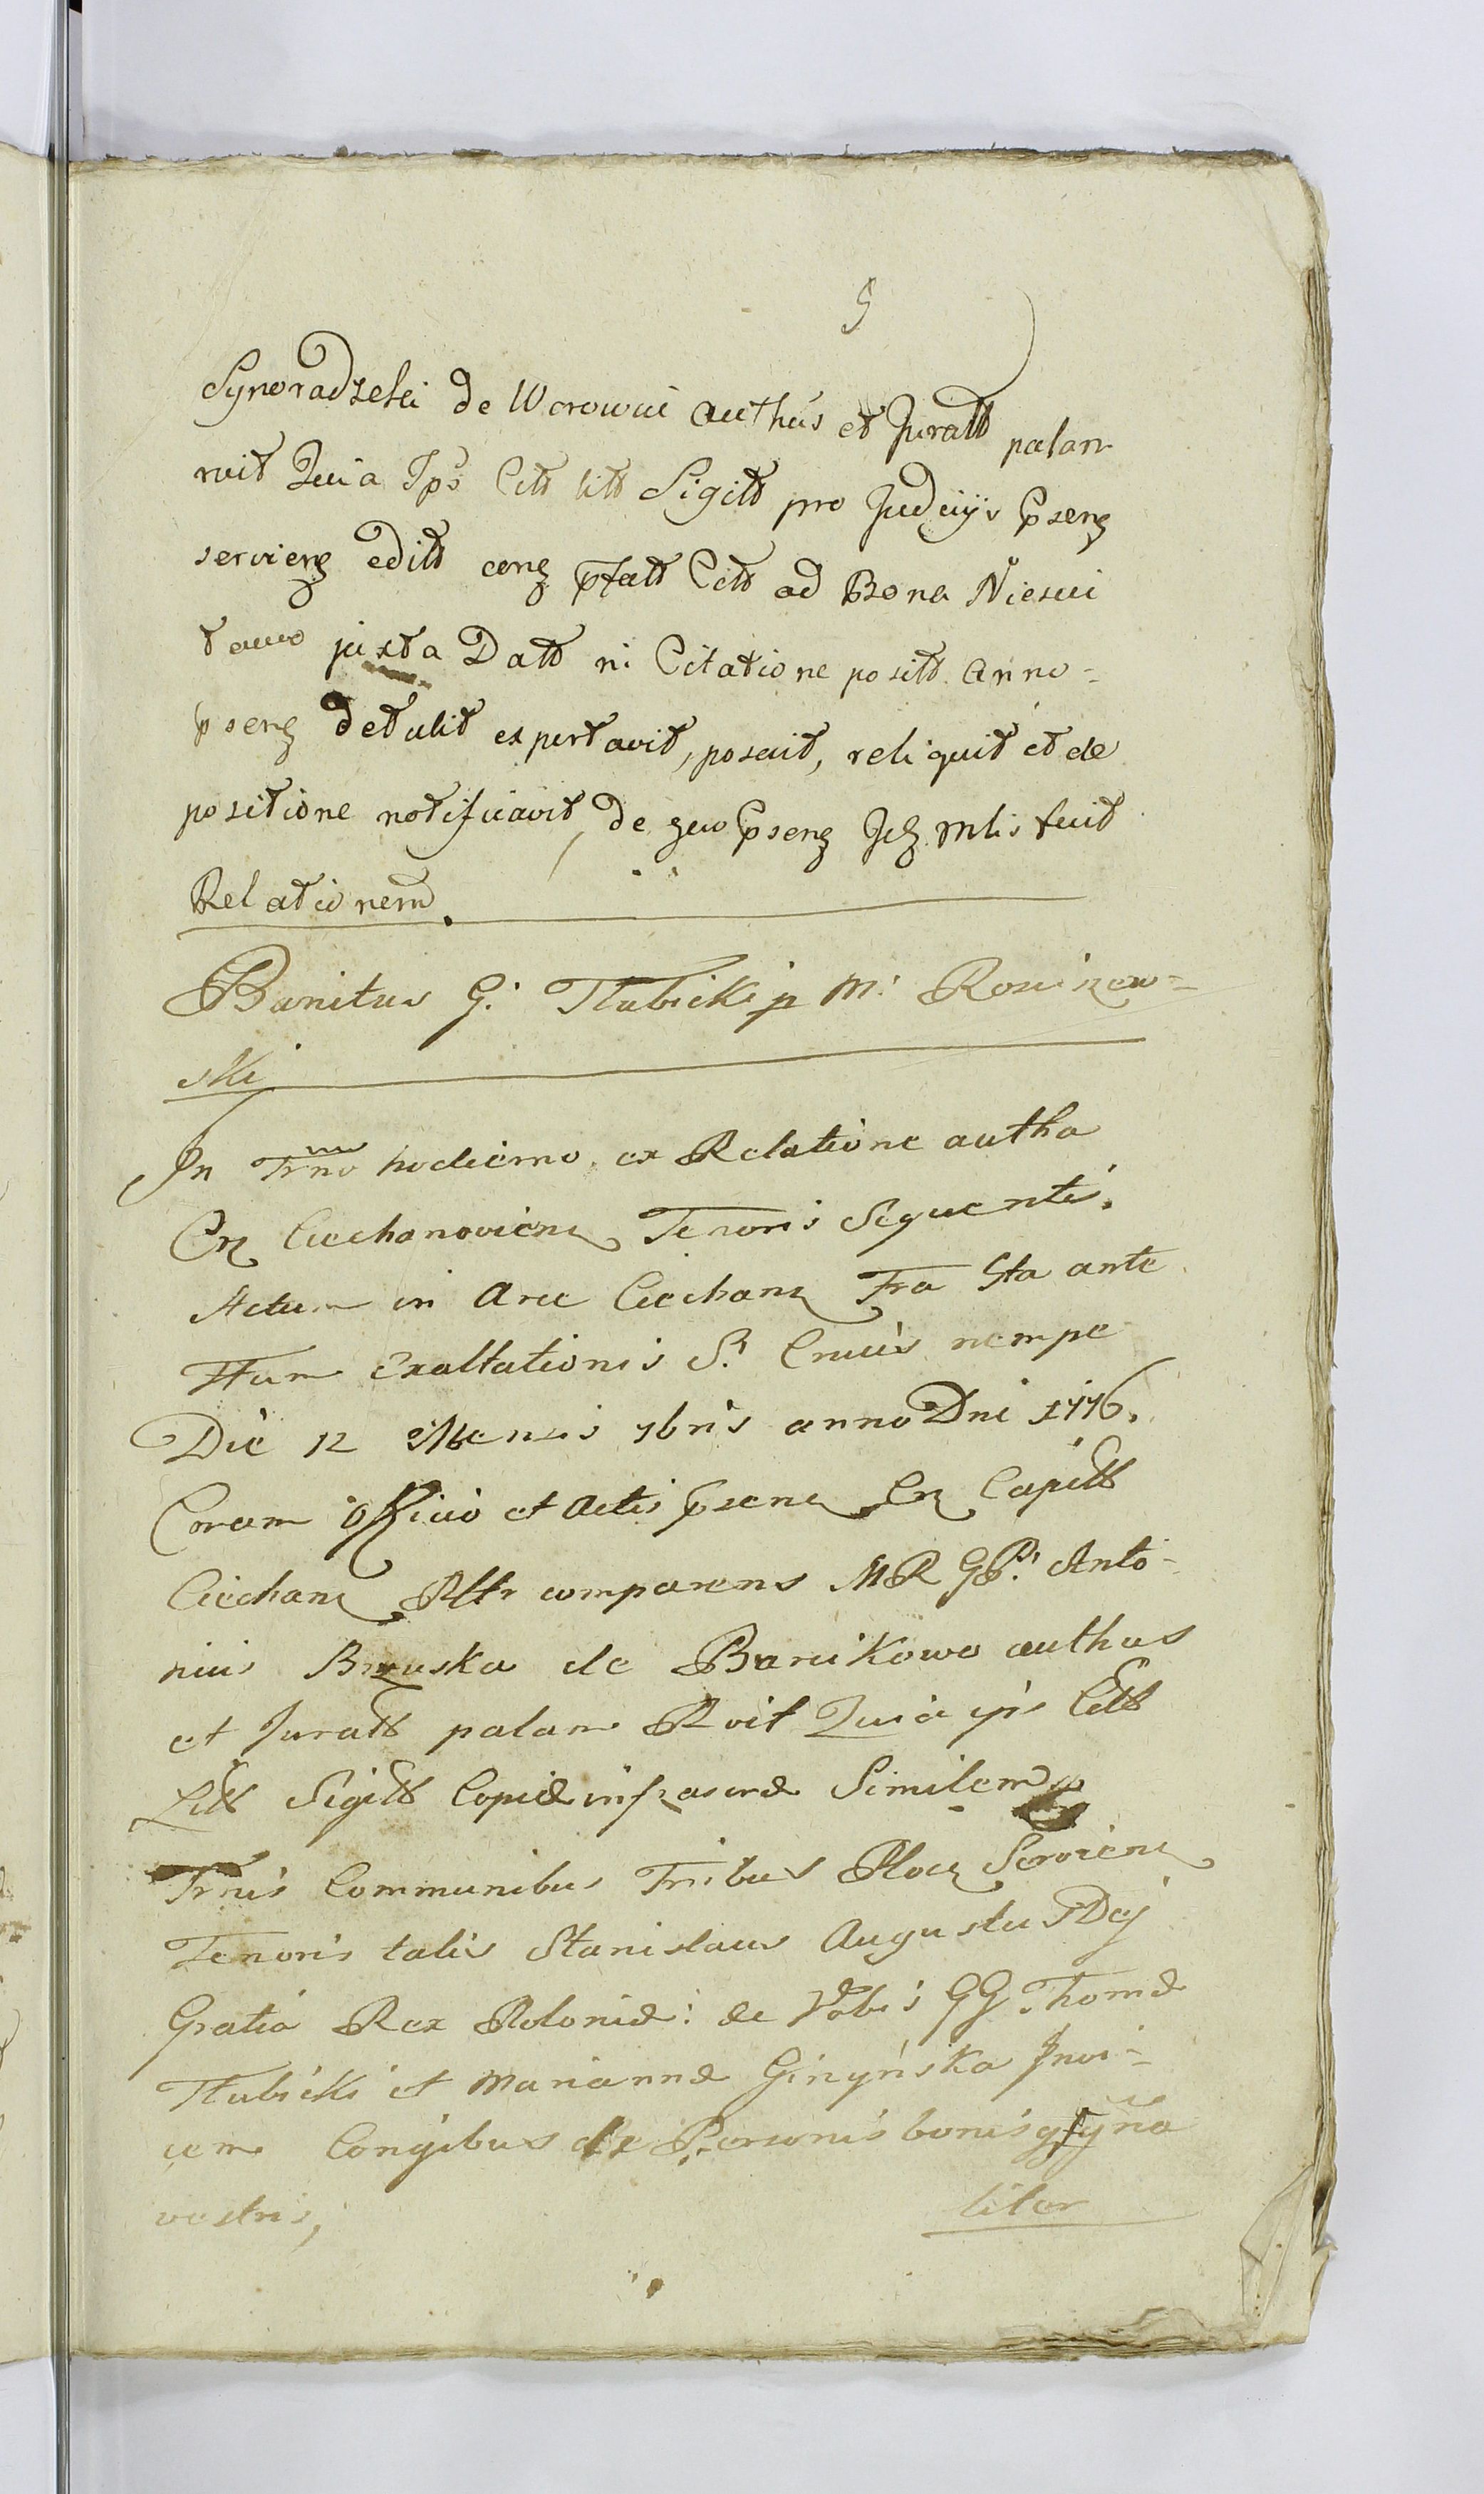 5
Synoradzki de Worowic authus et Juratt palam
roit Quia Ips Citt litt Sigitt pro Judicijs psenz
servienz editt conz ptatt Citt ad Bona Niesui
towo juxta Datt ni Citatione positt anno-
psenz detulit exportavit, posuit, reliquit et de
positione notificavit, de quo psenz Jcz mlis fuit
Relationem.
Banitus G: Tłubicki p M: Rosiszew-
ski
In Trno hodierno, ex Relatione autha
Crz Ciechanoviens Tenoris Sequentis.
Actum in Arce Ciechanz Fra 5ta ante
Ftum Exaltationis S: Crucis nempe
Die 12 Mensis 7bris anno Dni 1776.
Coram officio et Actis psenz Crz Capitt
Ciechanz Pltr comparens MR GP: Anto-
nius Bruska de Barcikowo authus
et Juratt palam Roit Quia ips Citt
Litt Sigitt Copiæ infrascræ Similem
Trnis Communibus Tribus Plocz Serviens
Tenoris talis Stanislaus Augustus Dej
Gratia Rex Poloniæ: &c Vobis GG Thomæ
Tłubicki et Mariannæ Ginyńska Invi-
cem Congibus de Personis bonisq gñna
vestris, liter